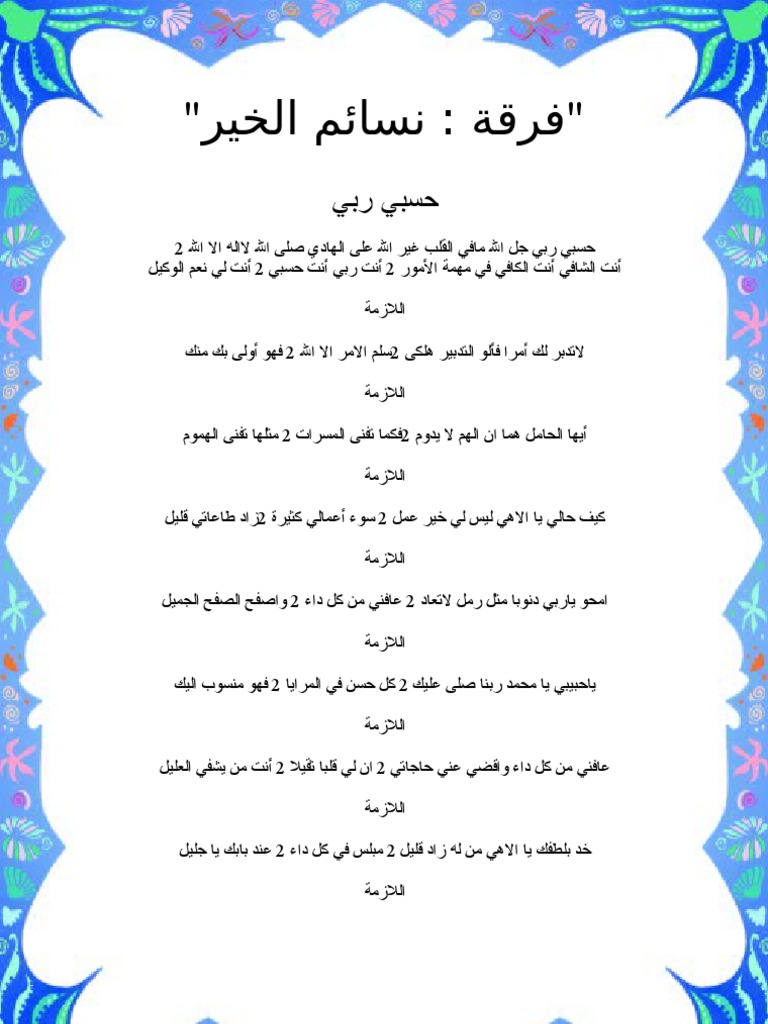 "فرقة : نسائم الخير"
حسبي ربي
حسبي ربي جل الله مافي القلب غير الله على الهادي صلى الله لااله الا الله 2
أنت الشافي أنت الكافي في مهمة الأمور 2 أنت ربي أنت حسبي 2 أنت لي نعم الوكيل
اللازمة
لاتدبر لك أمرا فألو التدبير هلكى 2سلم الامر الا الله 2 فهو أولى بك منك
اللازمة
أيها الحامل هما ان الهم لا يدوم 2فكما تفنى المسرات 2 مثلها تفنى الهموم
اللازمة
كيف حالي يا الاهي ليس لي خير عمل 2 سوء أعمالي كثيرة 2زاد طاعاتي قليل
اللازمة
امحو ياربي دنوبا مثل رمل لاتعاد 2 عافني من كل داء 2 واصفح الصفح الجميل
اللازمة
ياحبيبي يا محمد ربنا صلى عليك 2 كل حسن في المرايا 2 فهو منسوب اليك
اللازمة
عافني من كل داء واقضي عني حاجاتي 2 ان لي قلبا ثقيلا 2 أنت من يشفي العليل
اللازمة
خد بلطفك يا الاهي من له زاد قليل 2 مبلس في كل داء 2 عند بابك يا جليل
اللازمة